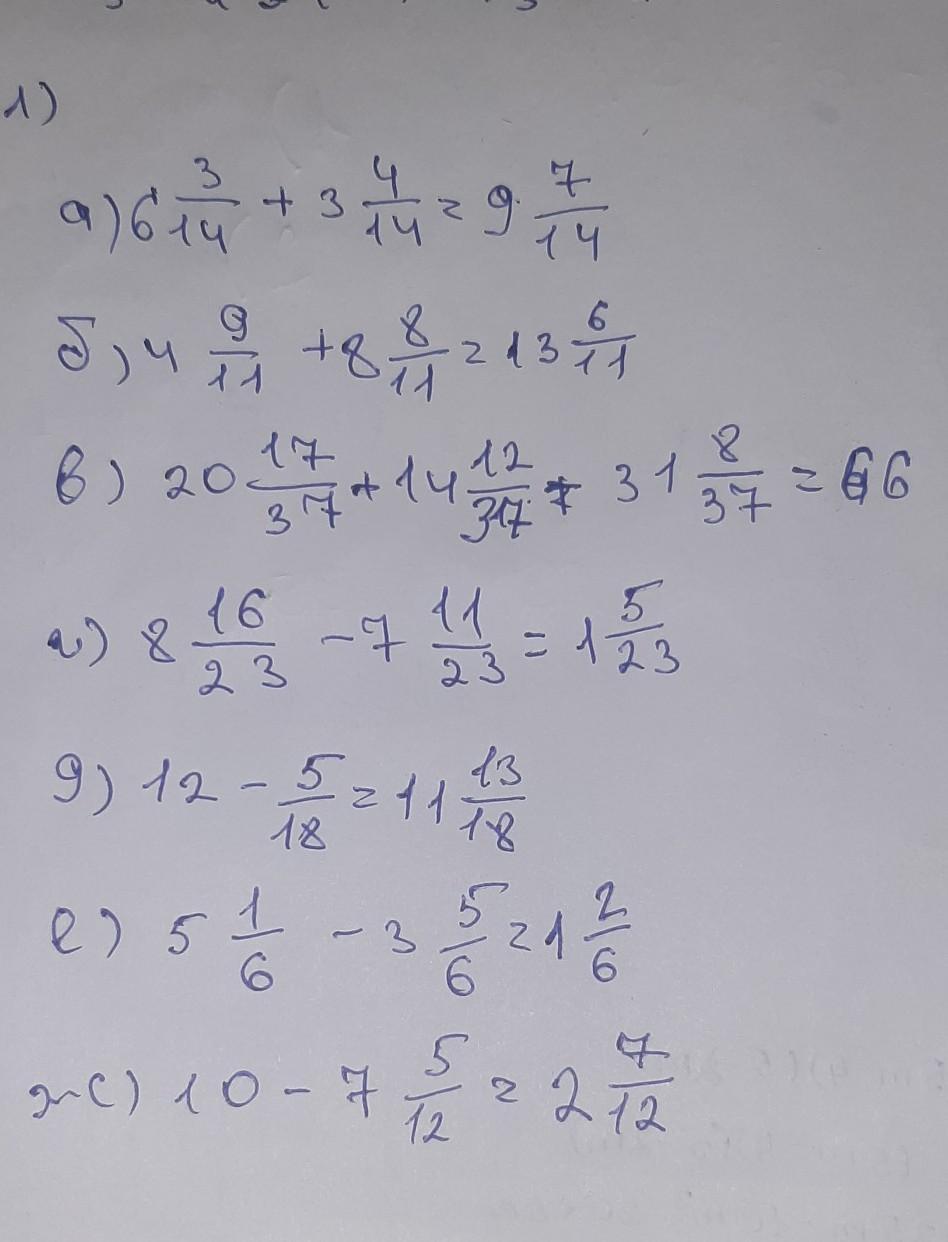 1)
а) 6 3/14 + 3 4/14 = 9 7/14
б) 4 9/11 + 8 8/11 = 13 6/11
в) 20 17/37 + 14 12/37 + 31 8/37 = 66
г) 8 16/23 - 7 11/23 = 1 5/23
д) 12 - 5/18 = 11 13/18
е) 5 1/6 - 3 5/6 = 1 2/6
ж) 10 - 7 5/12 = 2 7/12